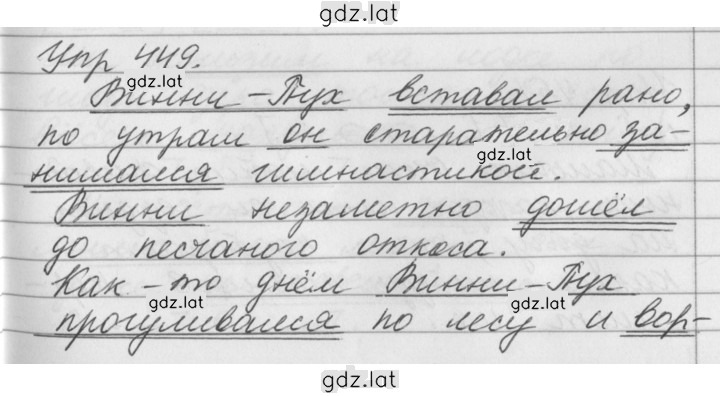 gdz.lat
Упр 449.
gdz.lat
Винни-Пух вставал рано,
по утрам он старательно за-
gdz.lat
нимался гимнастикой.
Винни незаметно дошёл
до песчаного откоса.
Как-то днём Винни-Пух
gdz.lat
gdz.lat
прогуливался по лесу и вор-
gdz.lat